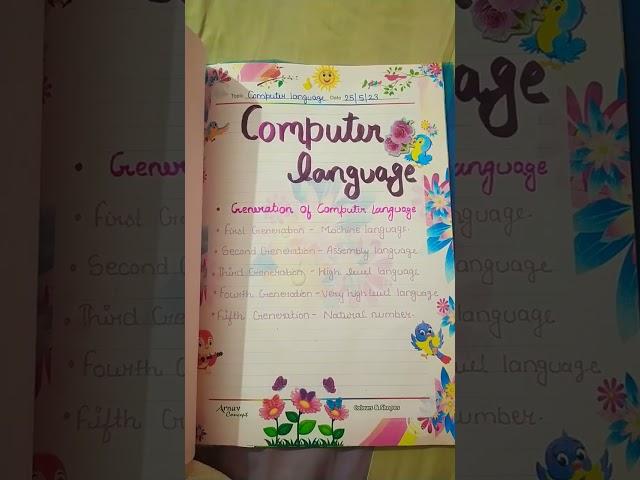 Topic Computer language Date 25/5/23
Computer
language
• Generation of Computer Language
• First Generation - Machine language.
• Second Generation - Assembly language
• Third Generation - High level language
• Fourth Generation - Very high level language
• Fifth Generation - Natural number.
Arnav
Concept
Colours & Shapes